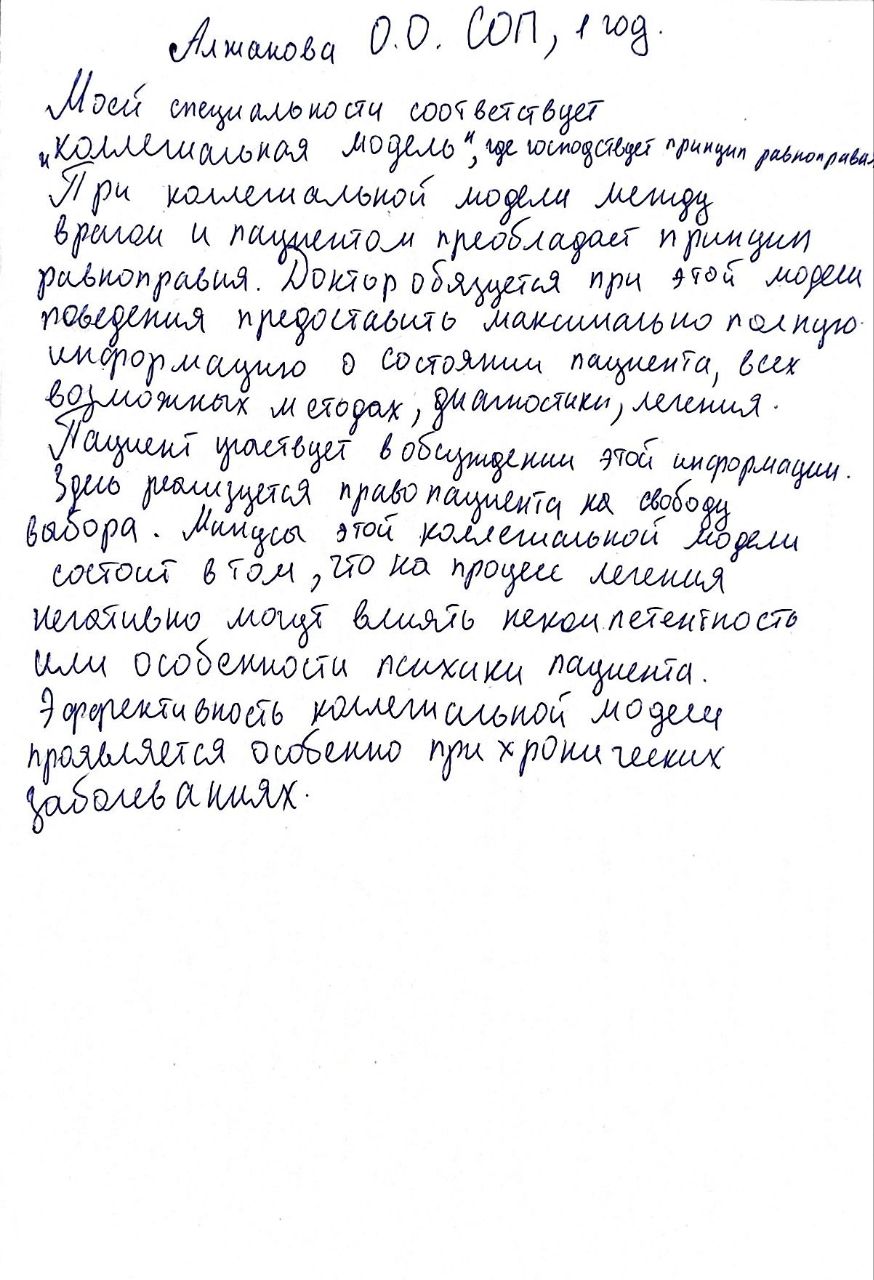 Алжанова О.О. СОП, 1 год.
Моей специальности соответствует
"коллегиальная модель", где господствует принцип равноправия
При коллегиальной модели между
врачом и пациентом преобладает принцип
равноправия. Доктор обязуется при этой модели
поведения предоставить максимально полную
информацию о состоянии пациента, всех
возможных методах, диагностики, лечения.
Пациент участвует в обсуждении этой информации.
Здесь реализуется право пациента на свободу
выбора. Минусы этой коллегиальной модели
состоит в том, что на процесс лечения
негативно могут влиять некомпетентность
или особенности психики пациента.
Эффективность коллегиальной модели
проявляется особенно при хронических
заболеваниях.